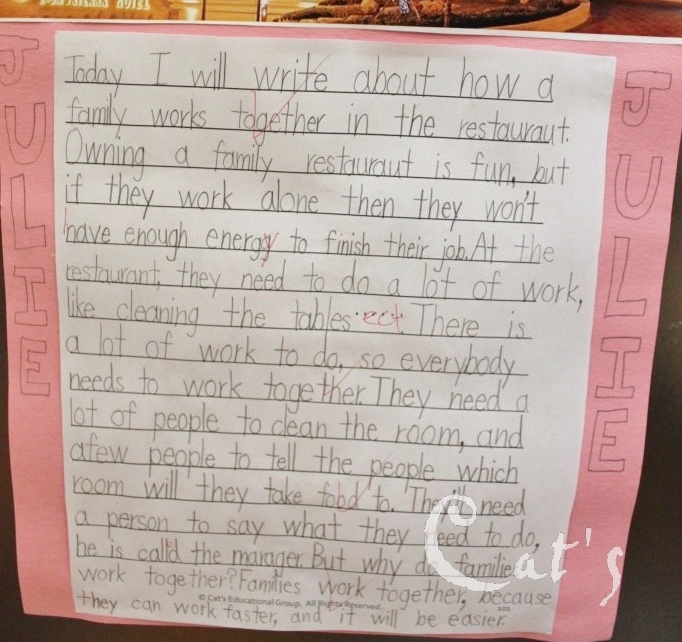 JULIE
Today I will write about how a
family works together in the restauraut.
Owning a family restauraut is fun, but
if they work alone then they won't
have enough energy to finish their job. At the
restaurant, they need to do a lot of work,
like cleaning the tables... ect. There is
a lot of work to do, so everybody
needs to work together. They need a
lot of people to clean the room, and
afew people to tell the people which
room will they take food to. They'll need
a person to say what they need to do,
he is calld the manager. But why do families
work together? Families work together, because
they can work faster, and it will be easier.
© Cat's Educational Group. All Rights Reserved.
Cat's
JULIE